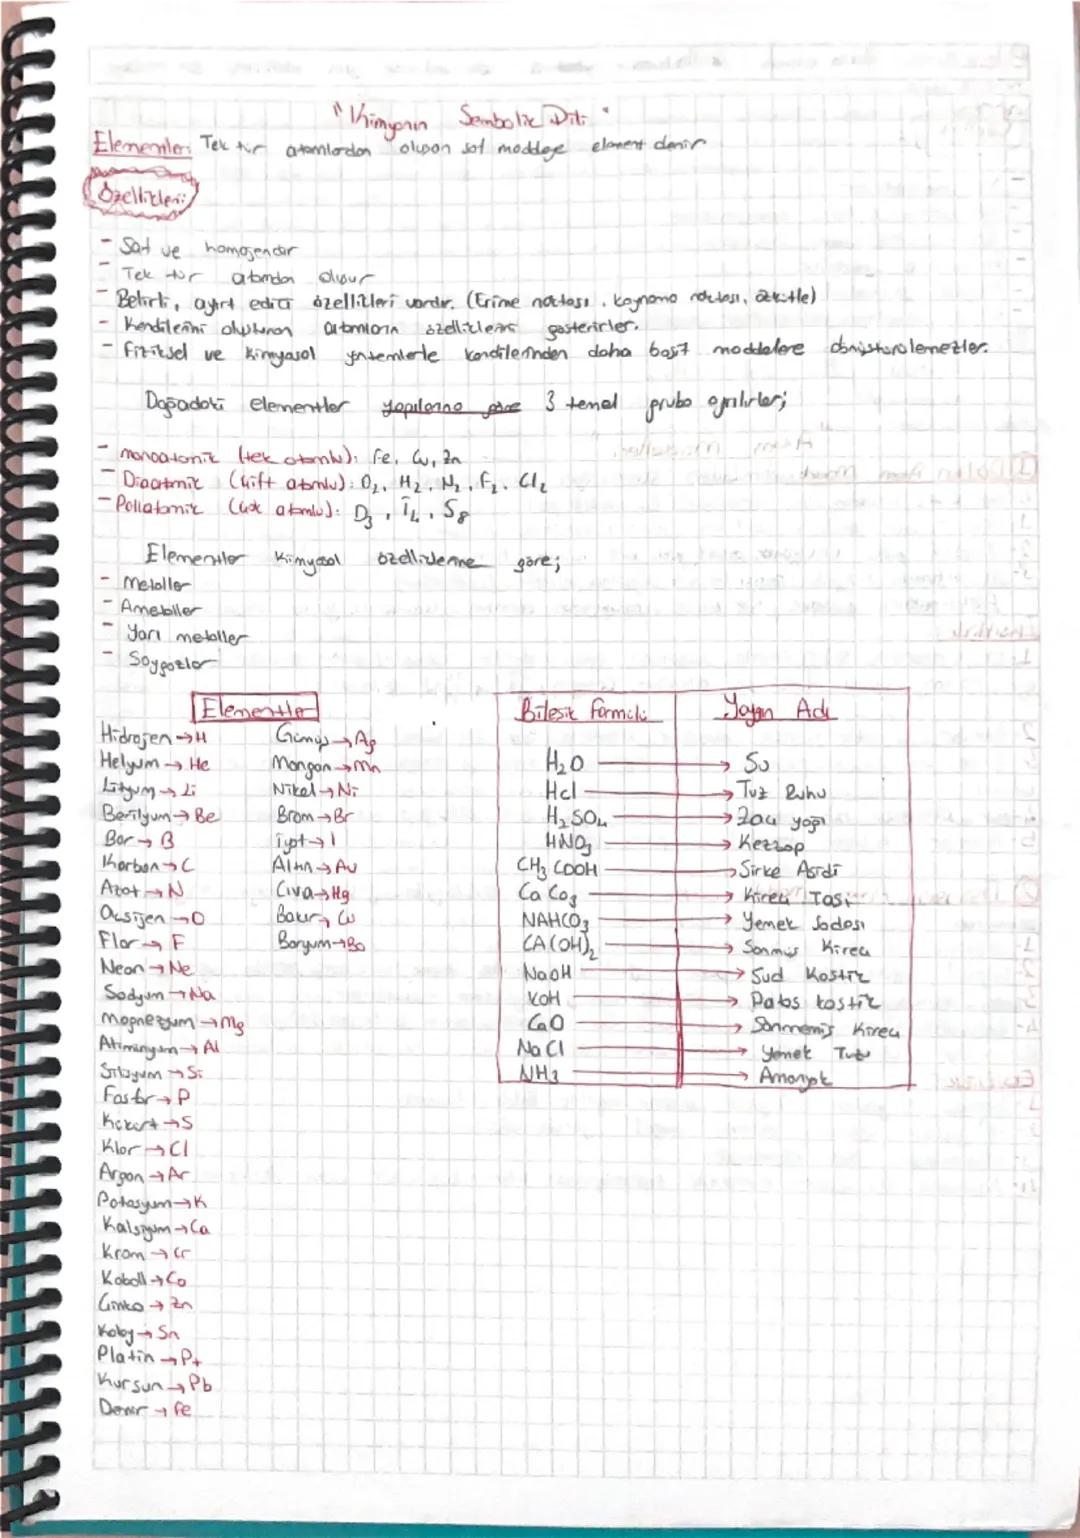 "Kimyanın Sembolik Dili"
Elementler: Tek tür atomlardan oluşan saf maddeye element denir
Özellikleri:
- Saf ve homojendir
- Tek tür atomdan oluşur
- Belirli, ayırt edici özellikleri vardır. (Erime noktası, kaynama noktası, özkütle)
- Kendilerini oluşturan atomların özelliklerini gösterirler.
- Fiziksel ve kimyasal yöntemlerle kendilerinden daha basit maddelere dönüştürülemezler.
Doğadaki elementler yapılarına göre 3 temel gruba ayrılırlar;
- monoatomik (tek atomlu): Fe, Cu, Zn
- Diaotmik (Çift atomlu): O₂, H₂, N₂, F₂, Cl₂
- Poliatomik (Çok atomlu): O₃, I₄, S₈
Elementler kimyasal özelliklerine göre;
- Metaller
- Ametaller
- Yarı metaller
- Soygazlar
Elementler
Hidrojen → H
Helyum → He
Lityum → Li
Berilyum → Be
Bor → B
Karbon → C
Azot → N
Oksijen → O
Flor → F
Neon → Ne
Sodyum → Na
Magnezyum → Mg
Alüminyum → Al
Silisyum → Si
Fosfor → P
Kükürt → S
Klor → Cl
Argon → Ar
Potasyum → K
Kalsiyum → Ca
Krom → Cr
Kobalt → Co
Çinko → Zn
Kalay → Sn
Platin → Pt
Kurşun → Pb
Demir → Fe
Gümüş → Ag
Mangan → Mn
Nikel → Ni
Brom → Br
İyot → I
Altın → Au
Cıva → Hg
Bakır → Cu
Baryum → Ba
Bileşik Formülü Yaygın Adı
H₂O → Su
Hcl → Tuz Ruhu
H₂SO₄ → Zaç yağı
HNO₃ → Kezzap
CH₃COOH → Sirke Asidi
CaCo₃ → Kireç Taşı
NAHCO₃ → Yemek Sodası
CA(OH)₂ → Sönmüş Kireç
NaOH → Sud Kostik
KOH → Patas kostik
CaO → Sönmemiş Kireç
NaCl → Yemek Tuzu
NH₃ → Amonyak